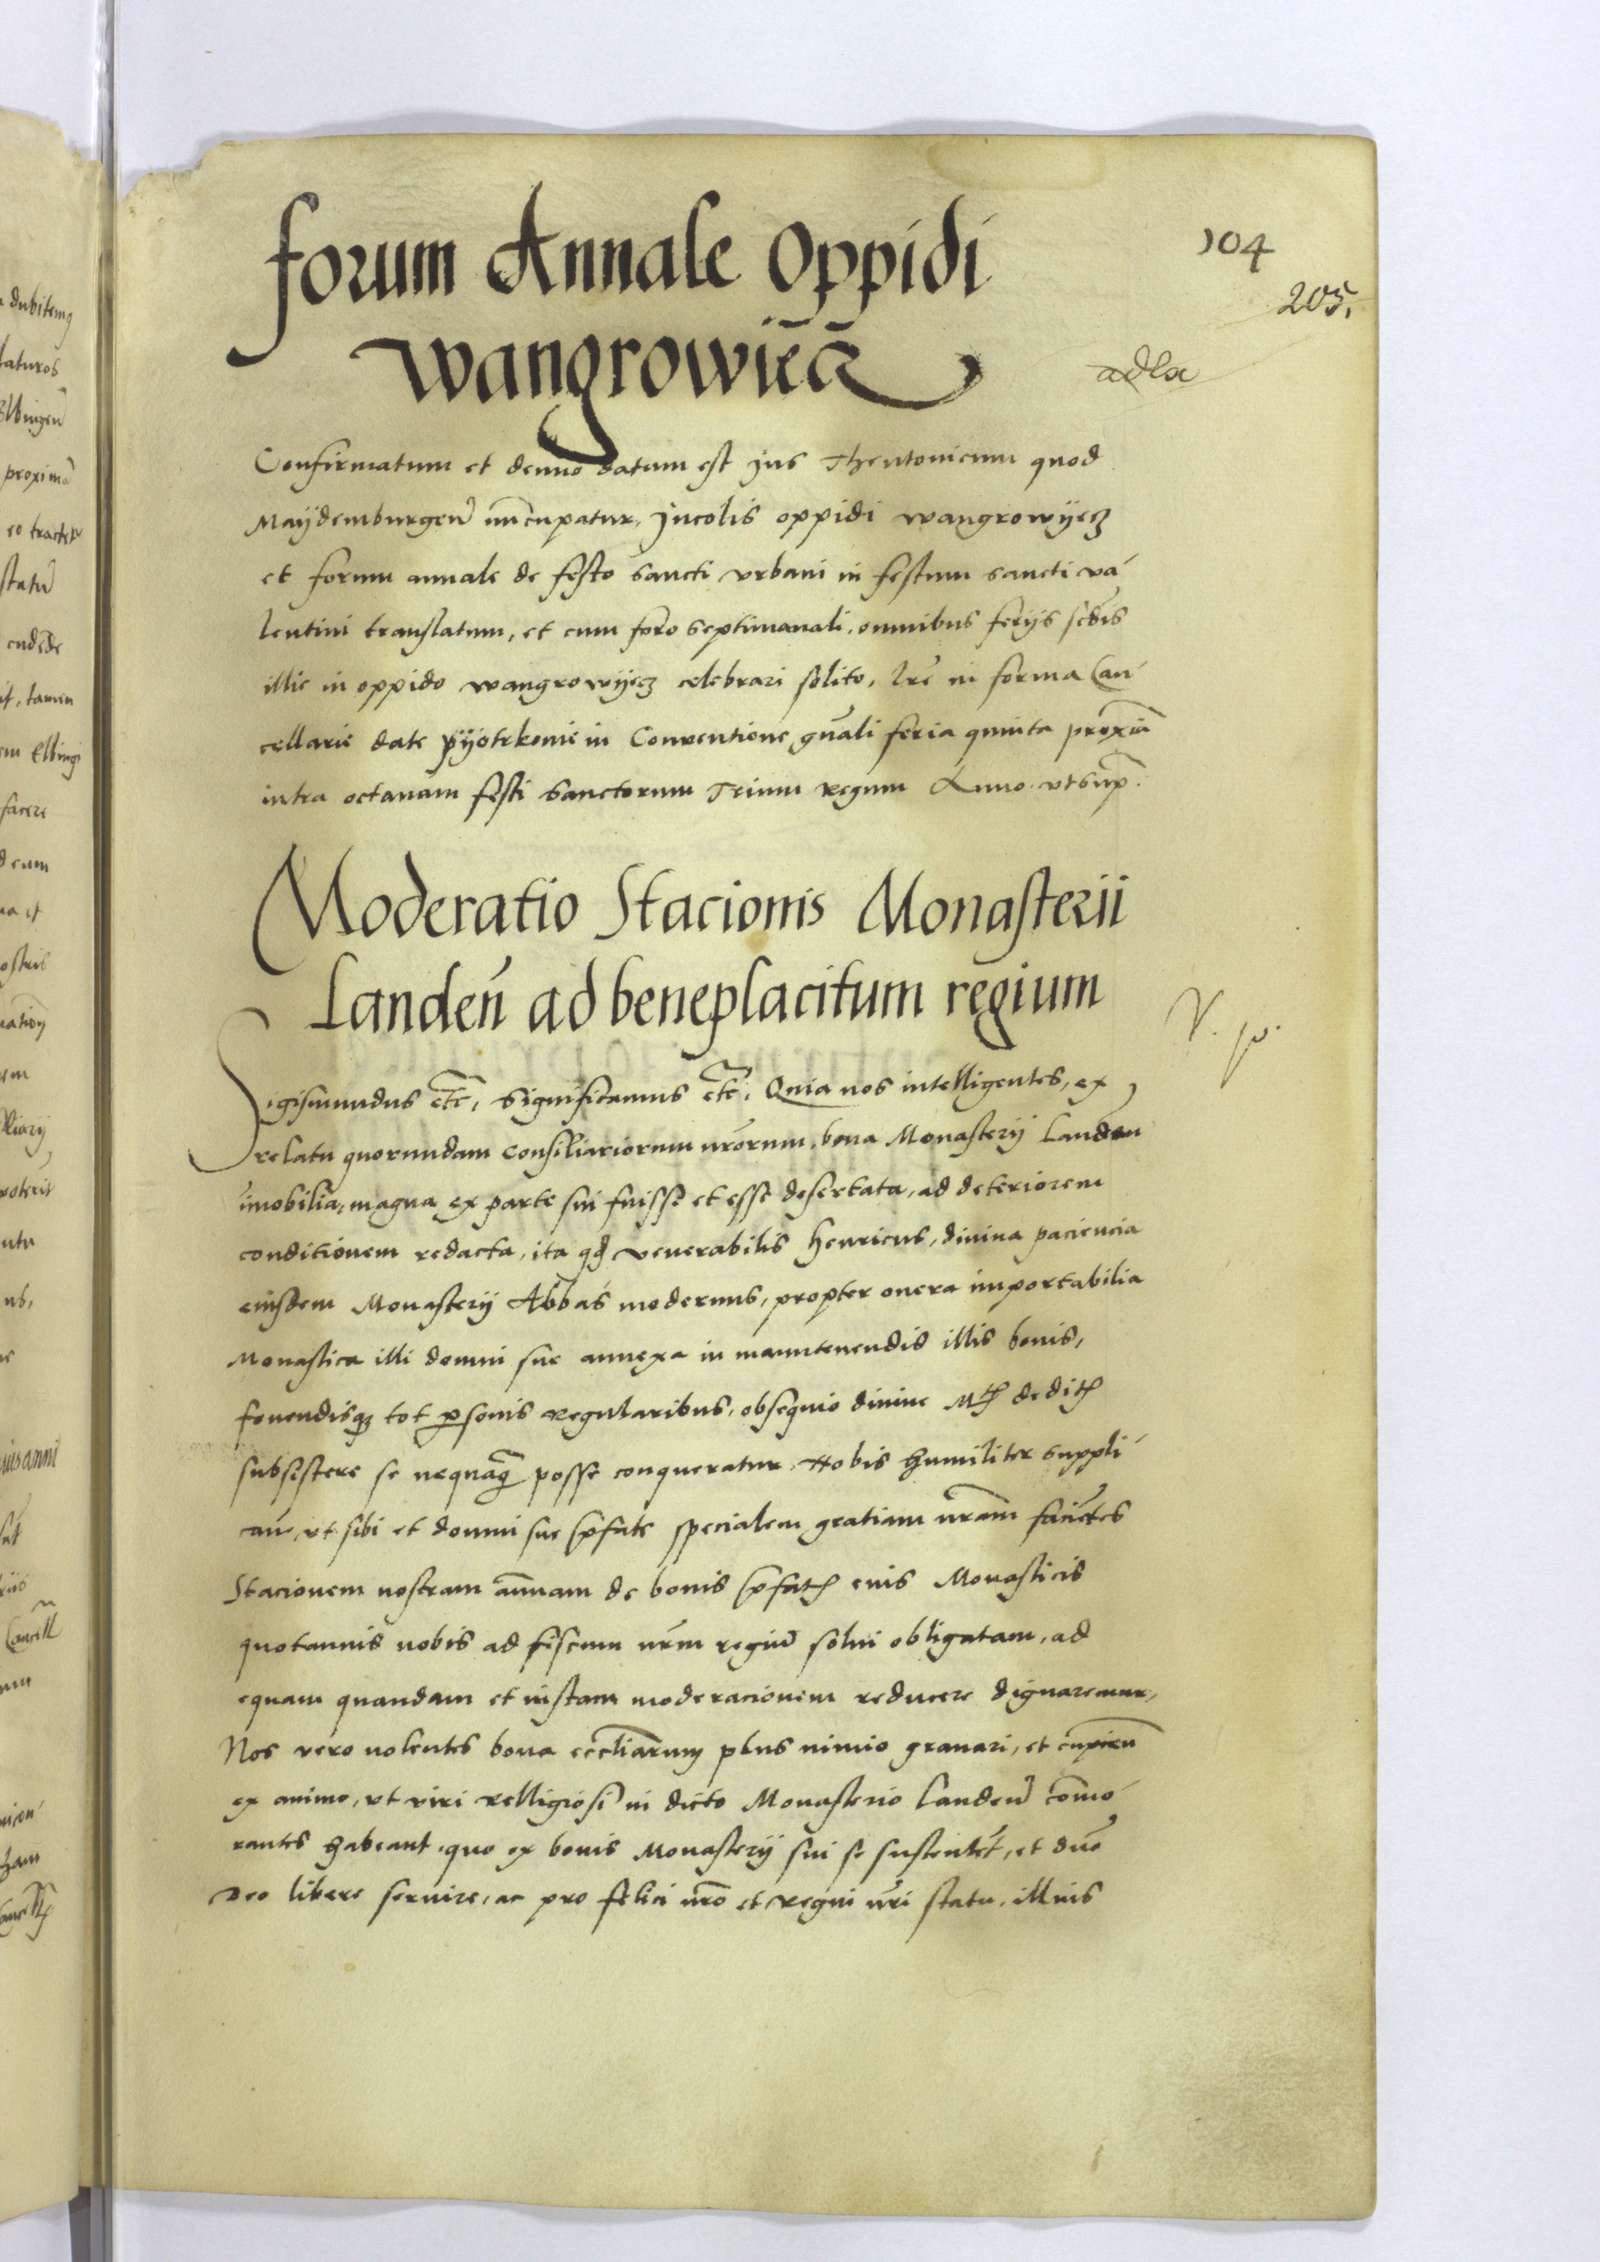 forum Annale Oppidi
wangrowiecz
104
205.
Confirmatum et denuo datum est Jus Theutonicum quod
Maÿdemburgen̄ nūcupatur, Jncolis oppidi wangrowÿecz
et forum annale de festo sancti vrbani in festum sancti va-
lentini translatum, et cum foro septimanali, omnibus ferijs sc̄dis
illic in oppido wangrowÿecz celebrari solito, Lr̄e in forma Can-
cellarie date pÿotrkouie in Conuentione gn̄ali feria quinta proxīa
intra octauam festi sanctorum Trium regum Anno vt sup̄.
Moderatio Stacionis Monasterii
Landen̄ ad beneplacitum regium
V. p.
Sigismundus etc̄, significamus etc̄. Quia nos intelligentes, ex
relatu quorundam consiliariorum nr̄orum, bona Monasterij Landen̄
īmobilia, magna ex parte sui fuisse et esse desertata, ad deteriorem
conditionem redacta, ita qd̄ venerabilis henricus, diuina paciencia
eiusdem Monasterij Abbas modernus, propter onera importabilia
Monastica illi domui sue annexa in manutenendis illis bonis,
fouendisqȝ tot ꝑsonis regularibus, obsequio diuine Mtꝭ deditꝭ
subsistere se nequaq̄ posse conqueratur. Nobis humiliter suppli-
cau̅, vt sibi et domui sue p̄fate specialem gratiam nr̄am faciētes
Stacionem nostram an̄uam de bonis p̄fatꝭ eius Monasticis
quotannis nobis ad fiscum nr̄m regiū solui obligatam, ad
equam quandam et iustam moderacionem reducere dignaremur,
Nos vero nolentes bona eccl̄iarum plus nimio grauari, et cupien̄
ex animo, vt viri relligiosi in dicto Monasterio Landen̄ cōmo-
rantes habeant, quo ex bonis Monasterij sui se sustentēt, et dn̄o
Deo libere seruire, ac pro felici nr̄o et regni nr̄i statu, illius